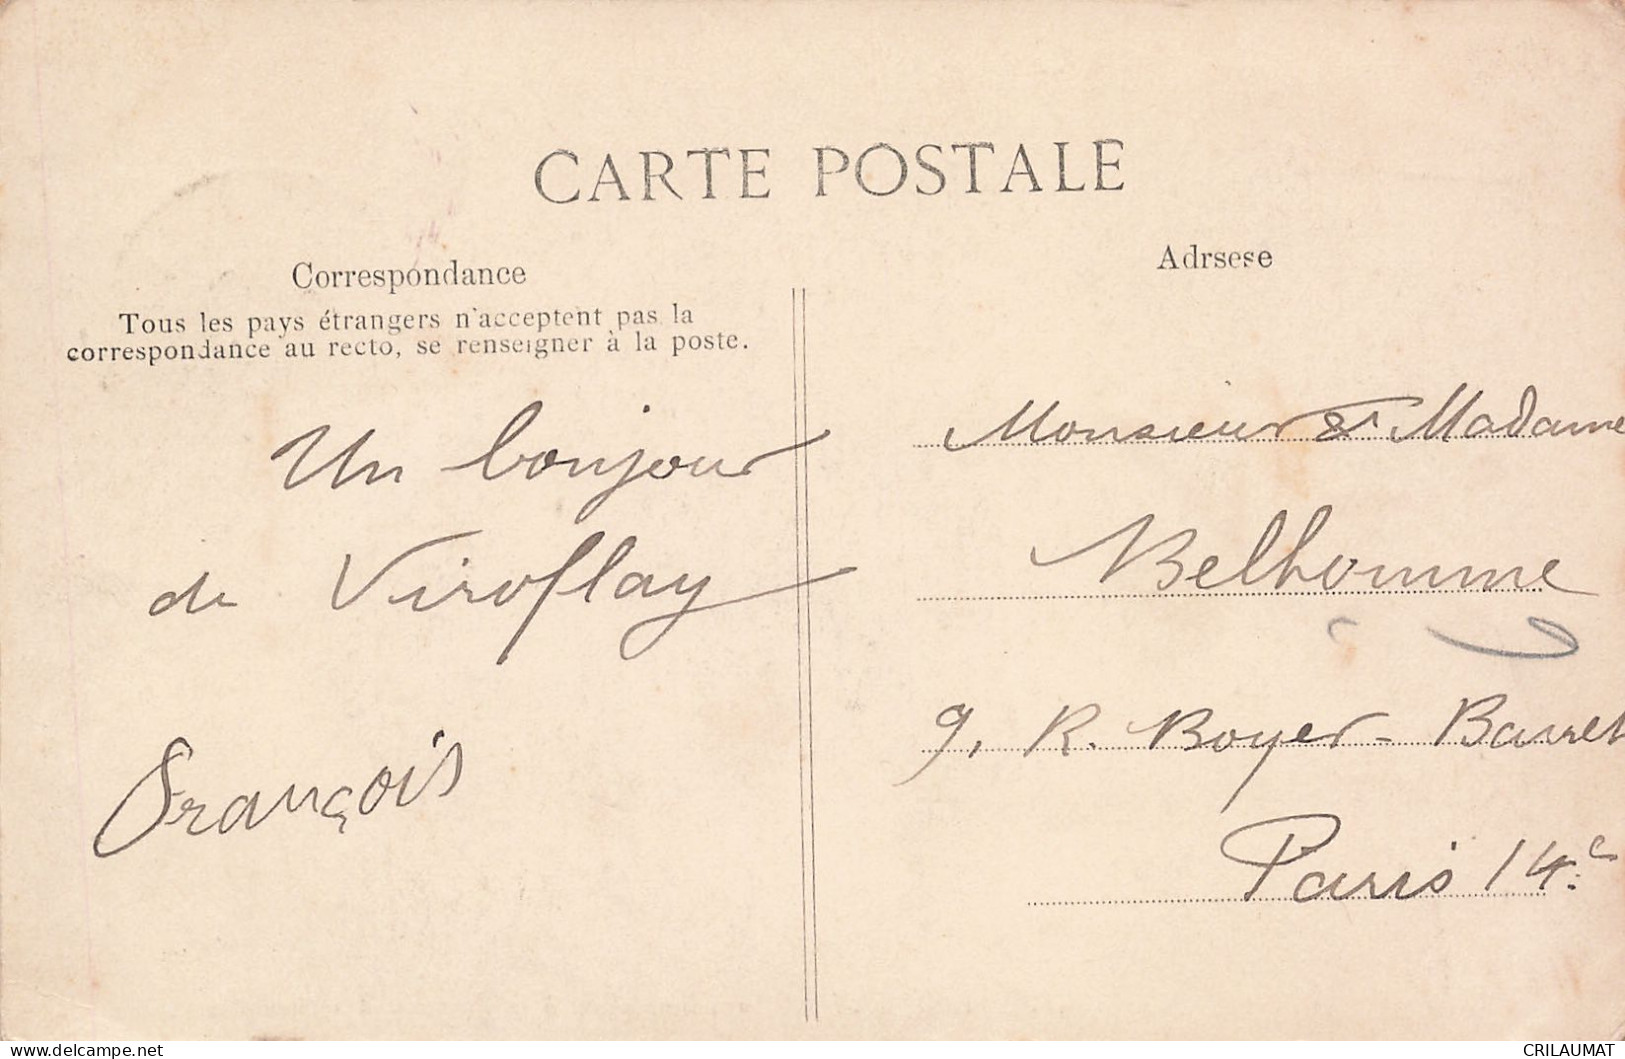 CARTE POSTALE
Correspondance
Tous les pays étrangers n'acceptent pas la
correspondance au recto, se renseigner à la poste.
Un bonjour
de Viroflay
François
Adrsese
Monsieur & Madame
Belhomme
9, R. Boyer-Barret
Paris 14.e
delcampe.net
CRILAUMAT